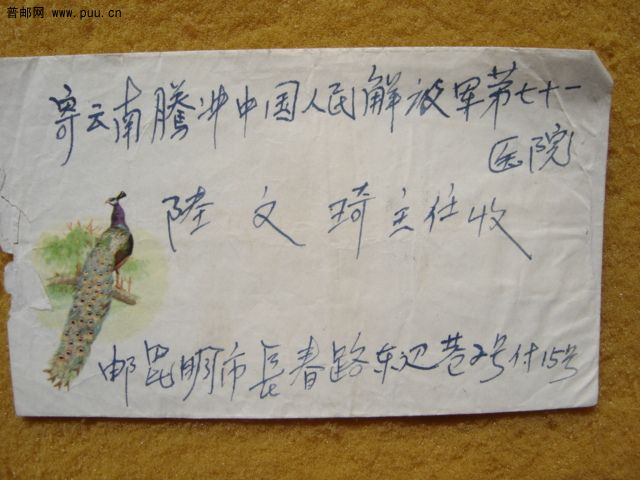 普邮网 www.puu.cn
寄云南腾冲中国人民解放军第七十一
医院
陆文琦主任收
邮昆明市長春路东边巷2号付15号